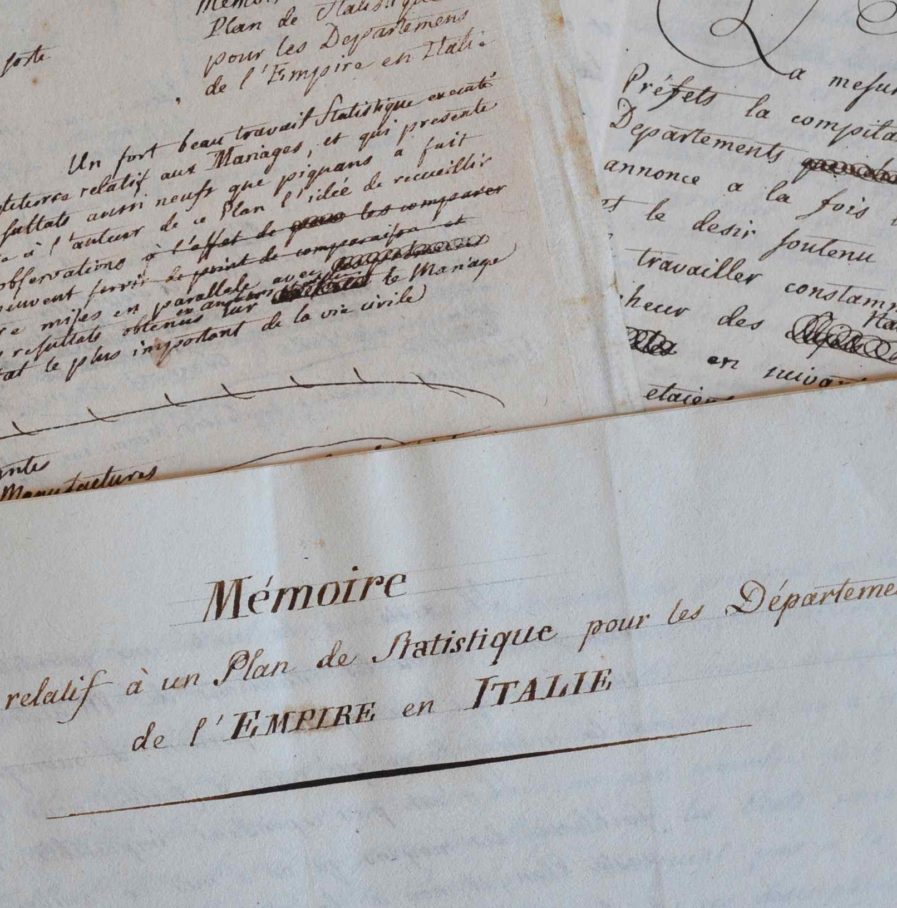 Plan de Statistique
pour les Departemens
de l'Empire en Itali
Un fort beau travail Statistique executé
relatif aux Mariages, et qui presente
aussi neufs que piquans a fait
à l'auteur de ce Plan l'idée de recueillir
observations à l'effet de les comparer
servir de point de comparaison et
mises en parallele avec
resultats obtenus sur le Mariage
le plus important de la vie civile
Manufactures
La mesur
Préfets la compila
Departements
annonce a la fois
le desir soutenu
travailler constamm
des
en suivan
etaien
Mémoire
relatif à un Plan de Statistique pour les Départeme
de l'EMPIRE en ITALIE